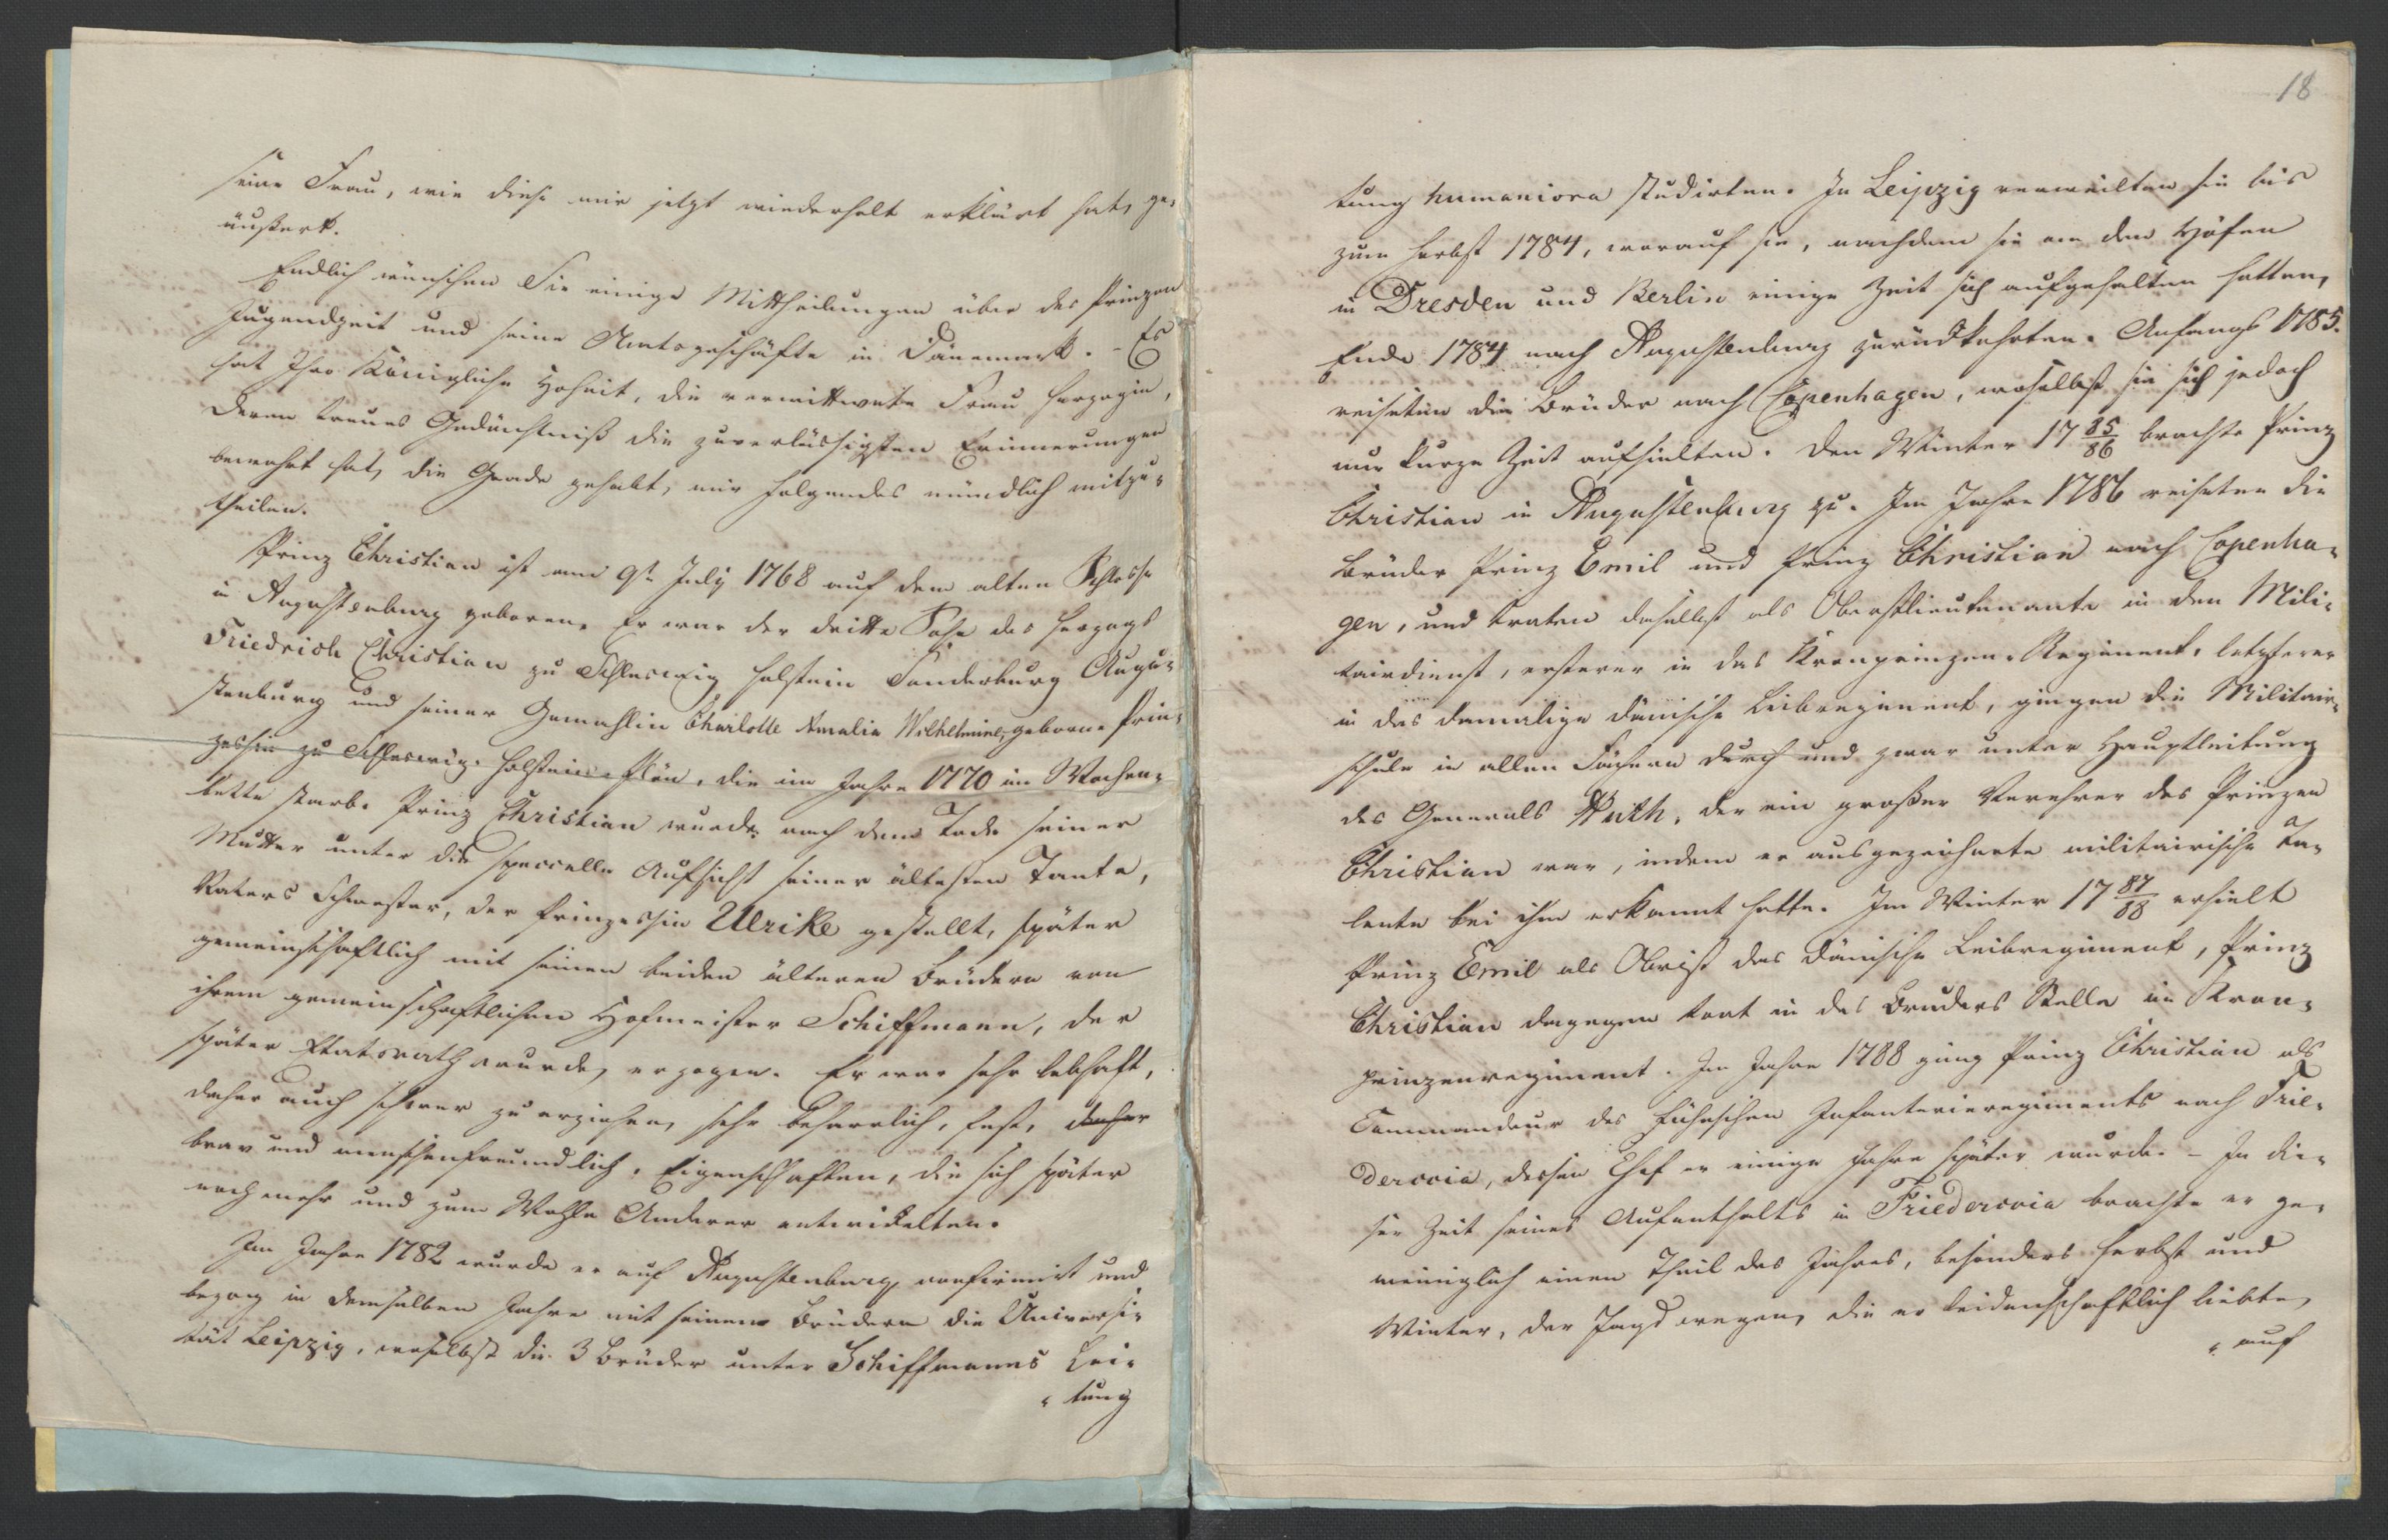 seine Frau, wie diese mir jetzt wiederholt erklärt hat, ge-
äußert.
Endlich wünschen Sie einige Mittheilungen über des Prinzen
Jugendzeit und seine Amtsgeschäfte in Dänemark. - Es
hat Ihro Königliche Hoheit, die verwittwete Frau Herzogin,
deren treues Gedächtniß die zuverlässigsten Erinnerungen
bewahrt hat, die Gnade gehabt, mir folgendes mündlich mitzu-
theilen.
Prinz Christian ist am 9t July 1768 auf dem alten Schlosse
in Augustenburg geboren. Er war der dritte Sohn des Herzogs
Friedrich Christian zu Schleswig Holstein Sonderburg Augu-
stenburg und seiner Gemahlin Charlotte Amalia Wilhelmine, geborne Prin-
zessin zu Schleswig-Holstein-Plön, die im Jahre 1770 im Wochen-
bette starb. Prinz Christian wurde nach dem Tode seiner
Mutter unter die specielle Aufsicht seiner ältesten Tante,
Vaters Schwester, der Prinzessin Ulrike gestellt, später
gemeinschaftlich mit seinen beiden älteren Brüdern von
ihrem gemeinschaftlichen Hofmeister Schiffmann, der
später Etatsrath wurde, erzogen. Er war sehr lebhaft,
daher auch schwer zu erziehen, sehr beharrlich, fest, daher
brav und menschenfreundlich, Eigenschaften, die sich später
noch mehr und zum Wohle Anderer entwickelten.
Im Jahre 1782 wurde er auf Augustenburg confirmirt und
bezog in demselben Jahre mit seinen Brüdern die Universi-
tät Leipzig, woselbst die 3 Brüder unter Schiffmanns Lei-
tung
18
tung humaniora studirten. In Leipzig verweilten sie bis
zum Herbst 1784, worauf sie, nachdem sie an den Höfen
in Dresden und Berlin einige Zeit sich aufgehalten hatten,
Ende 1784 nach Augustenburg zurückkehrten. Anfangs 1785.
reiseten die Brüder nach Copenhagen, woselbst sie sich jedoch
nur kurze Zeit aufhielten. Den Winter 17 85/86 brachte Prinz
Christian in Augustenburg zu. Im Jahre 1786 reiseten die
Brüder Prinz Emil und Prinz Christian nach Copenha-
gen, und traten daselbst als Oberstlieutenante in den Mili-
tairdienst, ersterer in das Kronprinzen-Regiment, letzterer
in das damalige dänische Leibregiment, gingen die Militair-
schule in allen Fächern durch und zwar unter Hauptleitung
des Generals Huth, der ein großer Verehrer des Prinzen
Christian war, indem er ausgezeichnete militairische Ta-
lente bei ihm erkannt hatte. Im Winter 17 87/88 erhielt
Prinz Emil als Obrist das dänische Leibregiment, Prinz
Christian dagegen trat in des Bruders Stelle im Kron-
prinzenregiment. Im Jahre 1788 ging Prinz Christian als
Commandeur des Fühnschen Infanterieregiments nach Frie-
dericia, dessen Chef er einige Jahre später wurde. - In die-
ser Zeit seines Aufenthalts in Friedericia brachte er ge-
meiniglich einen Theil des Jahres, besonders Herbst und
Winter, der Jagd wegen, die er leidenschaftlich liebte,
auf